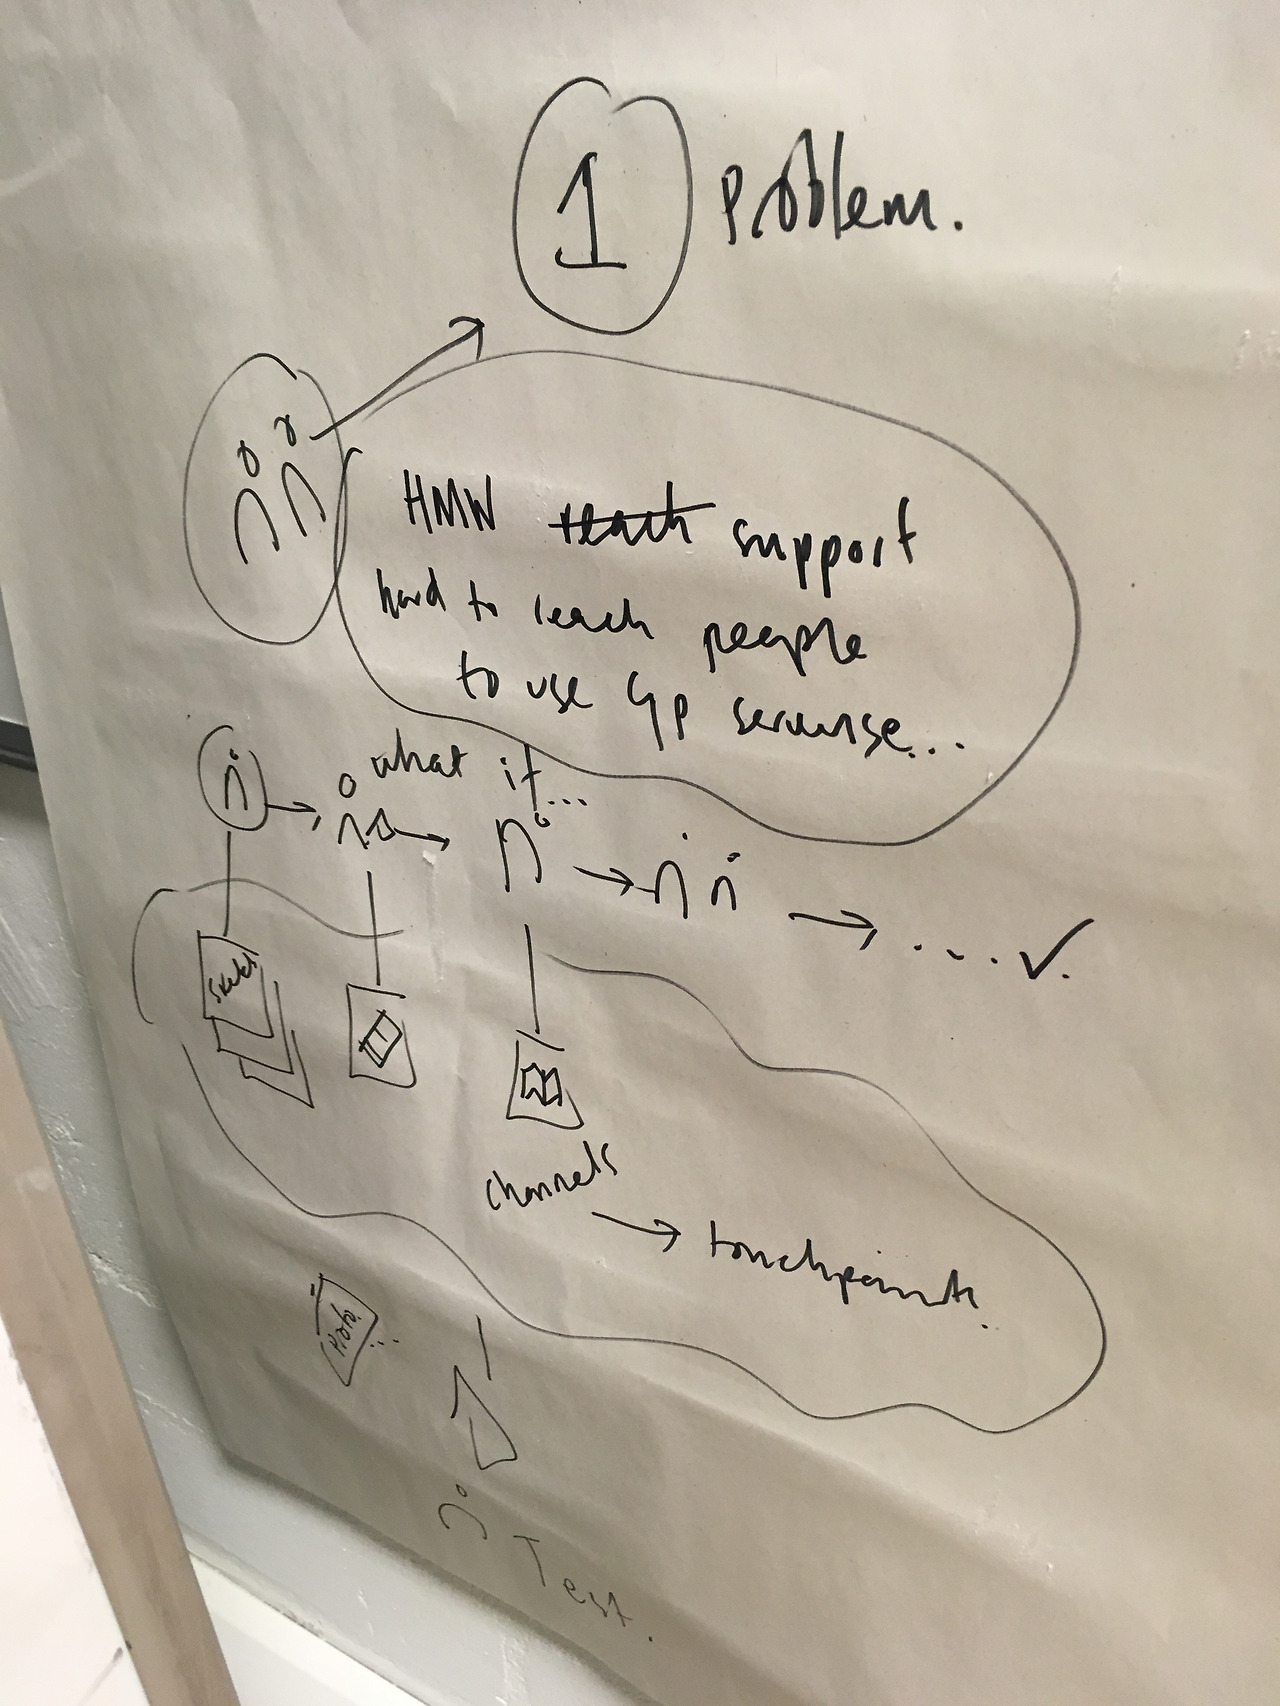 1 Problem.
HMW reach support
hard to reach people
to use GP serverse...
what if...
sketch
channels
touchpoints.
Proto.
...
Test.